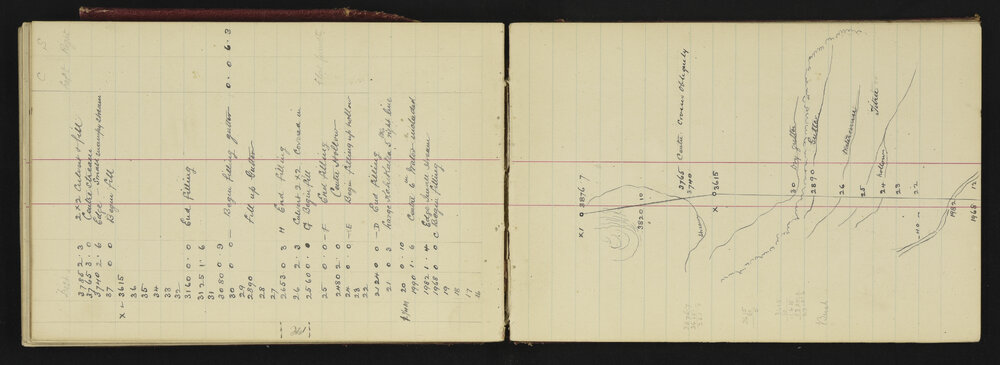 C S
Feet Right
3785 2·3 2 x 2 Culvert & fill
3765 3·0 Centre Stream
3740 2·6 Edge Small swampy stream
37 0 0 Begin fill
X L 3615
36
35
34
33
32
3160 0·0 End filling
3125 1·6
31
3080 0 9
30 0·0 — Begin filling gutter 0·0 6·3
29
2890 Fill up Gutter
28
27
2653 0 3 H End filling
26 2·3 Culvert 2 x 2 Covered in
2560 0 0 G Begin fill
25 0·0 — F End filling
2480 2·0 Centre Hollow
24 0·0 — E Begin filling up hollow
23
22
2124 0 — D End filling
21 0 3 large Kahikatia 5 right line
20 0·10
1990 1·6 Centre 6 in Water
1982 1·4 Edge Small Stream
1968 0 0 C Begin filling
19
18
17
16
X1 0 3876 7
3820 10
3765 Centre Crosses Obliquely
3740
Stream
X 0 3615
30 Dry gutter
2890 Gutter
26 Watercourse
25
24 hollow
Titree
23
22
H0
1982
1968
12